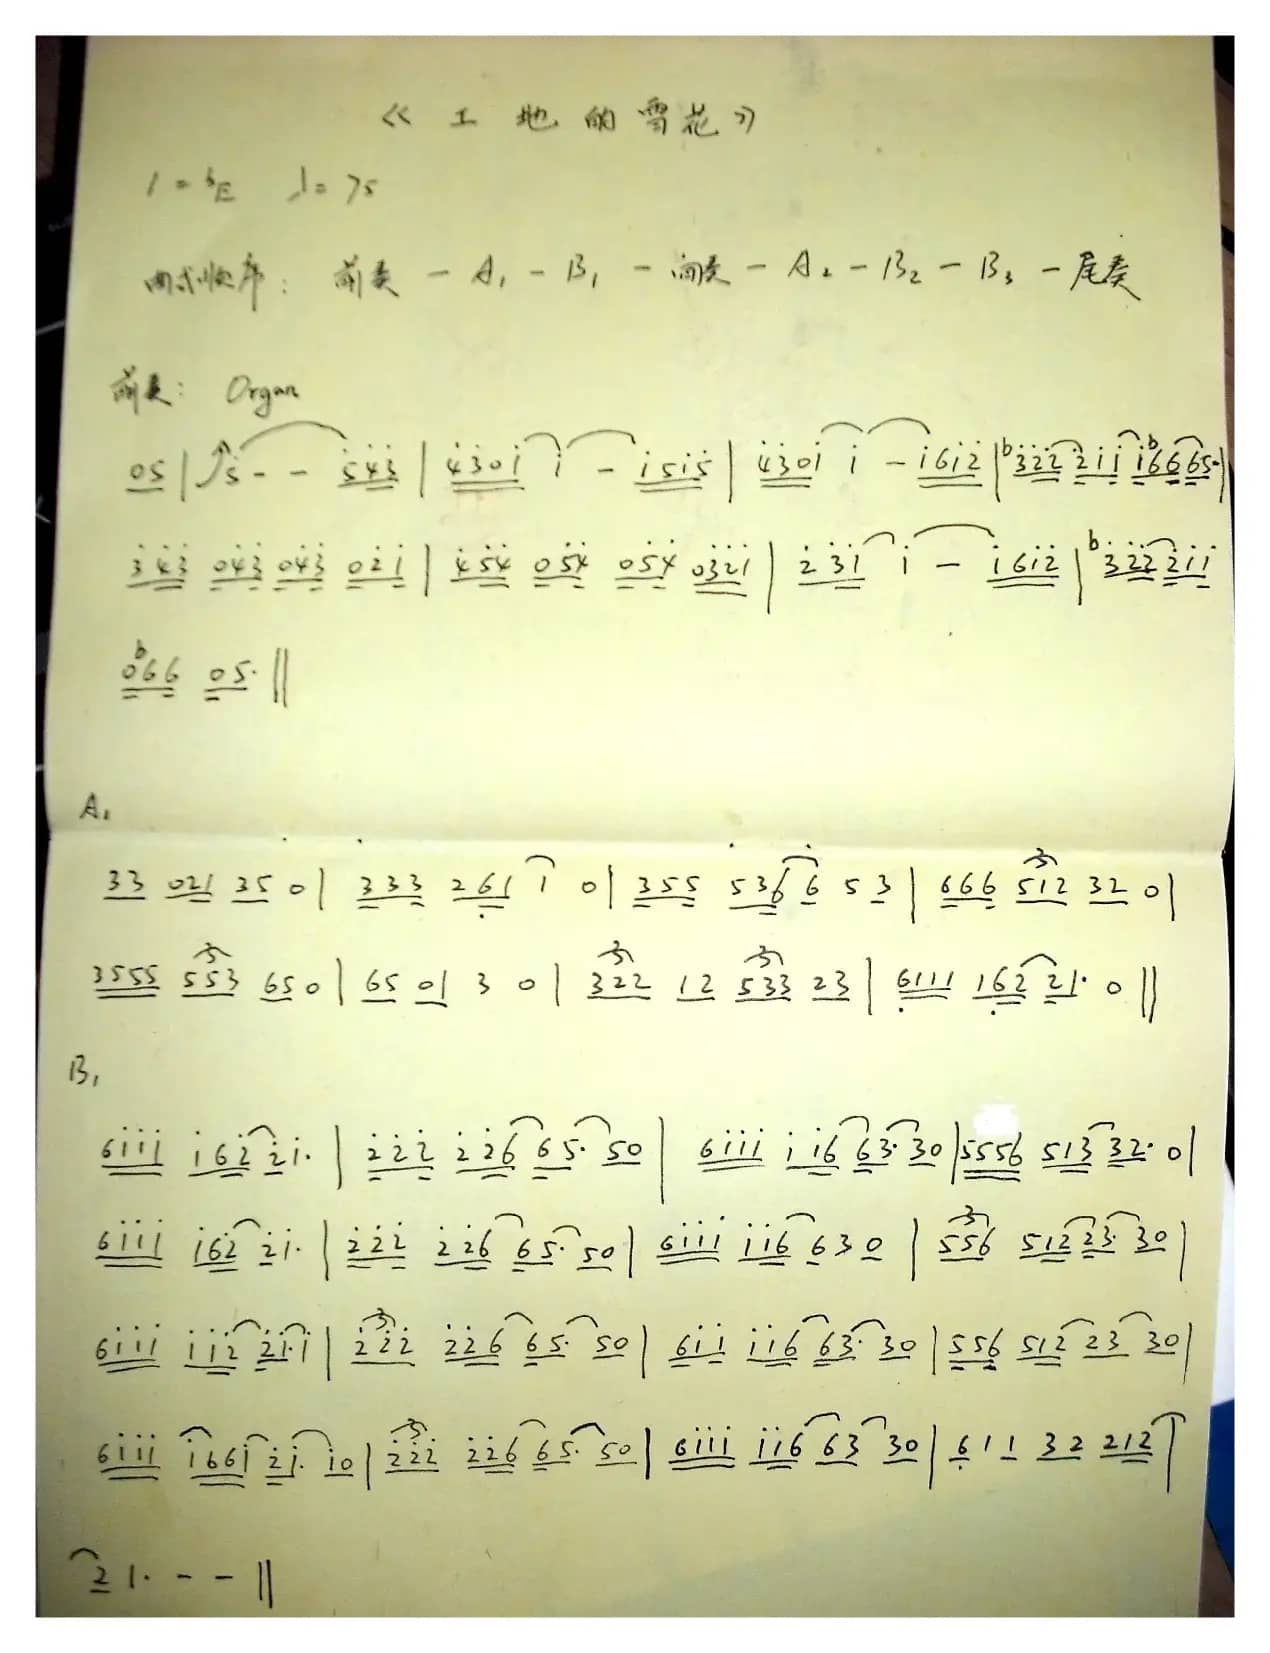 《工地的雪花》
1=♭E ♩=75
曲式顺序: 前奏 - A1 - B1 - 间奏 - A2 - B2 - B3 - 尾奏
前奏: Organ
05 | 5 - - 543 | 4301 1 - 1515 | 4301 1 - 1612 | ♭322 211 1♭6665· |
343 043 043 021 | 454 054 054 0321 | 231 1 - 1612 | ♭322 211
0♭66 05· ||
A1
33 021 35 0 | 333 261 1 0 | 355 536 6 53 | 666 512 32 0 |
3555 553 650 | 65 01 3 0 | 322 12 533 23 | 6111 162 21· 0 ||
B1
6111 162 21· | 222 226 65· 50 | 6111 116 63· 30 | 5556 513 32· 0 |
6111 162 21· | 222 226 65· 50 | 6111 116 630 | 556 512 23· 30 |
6111 112 21·1 | 222 226 65· 50 | 611 116 63· 30 | 556 512 23 30 |
6111 1661 21· 10 | 222 226 65· 50 | 6111 116 63 30 | 611 32 212 |
21· - - ||